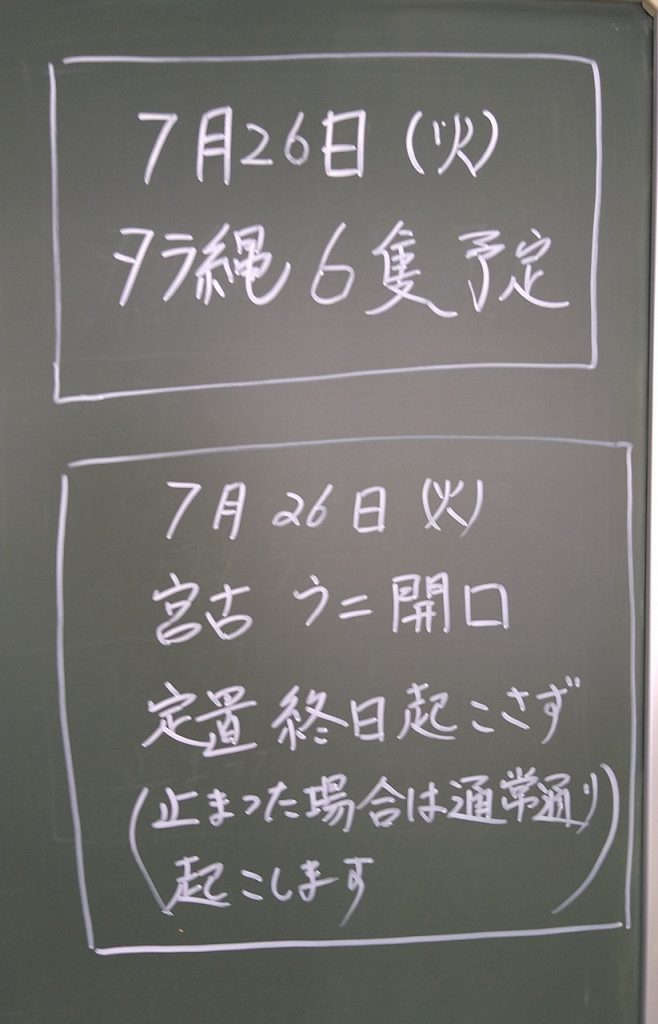 7月26日(火)
タラ縄 6隻 予定
7月 26日 (火)
宮古 ウニ 開口
定置 終日起こさず
(止まった場合は通常通り
起こします)